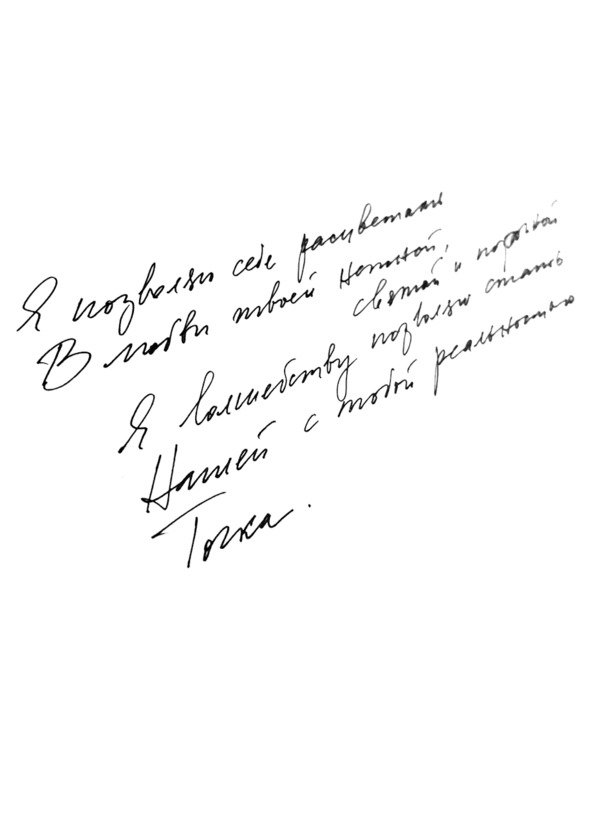 Я позволяю себе расцветать
В любви твоей
святой и порочной
Я волшебству позволяю стать
Нашей с тобой реальностью
Точка.